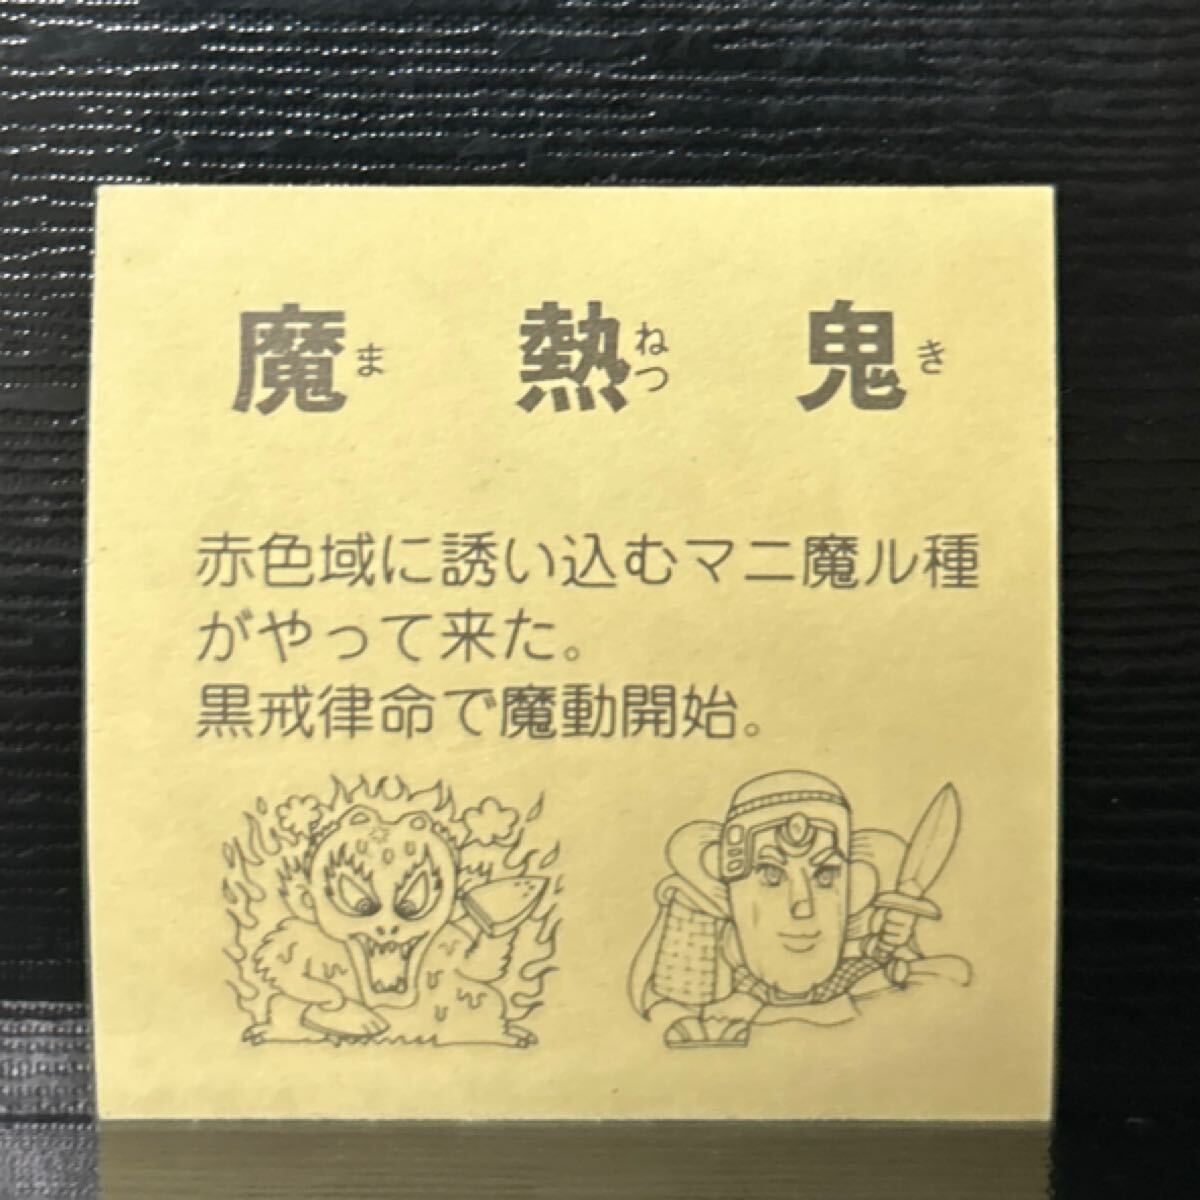 魔ま 熱ねつ 鬼き
赤色域に誘い込むマニ魔ル種
がやって来た。
黒戒律命で魔動開始。